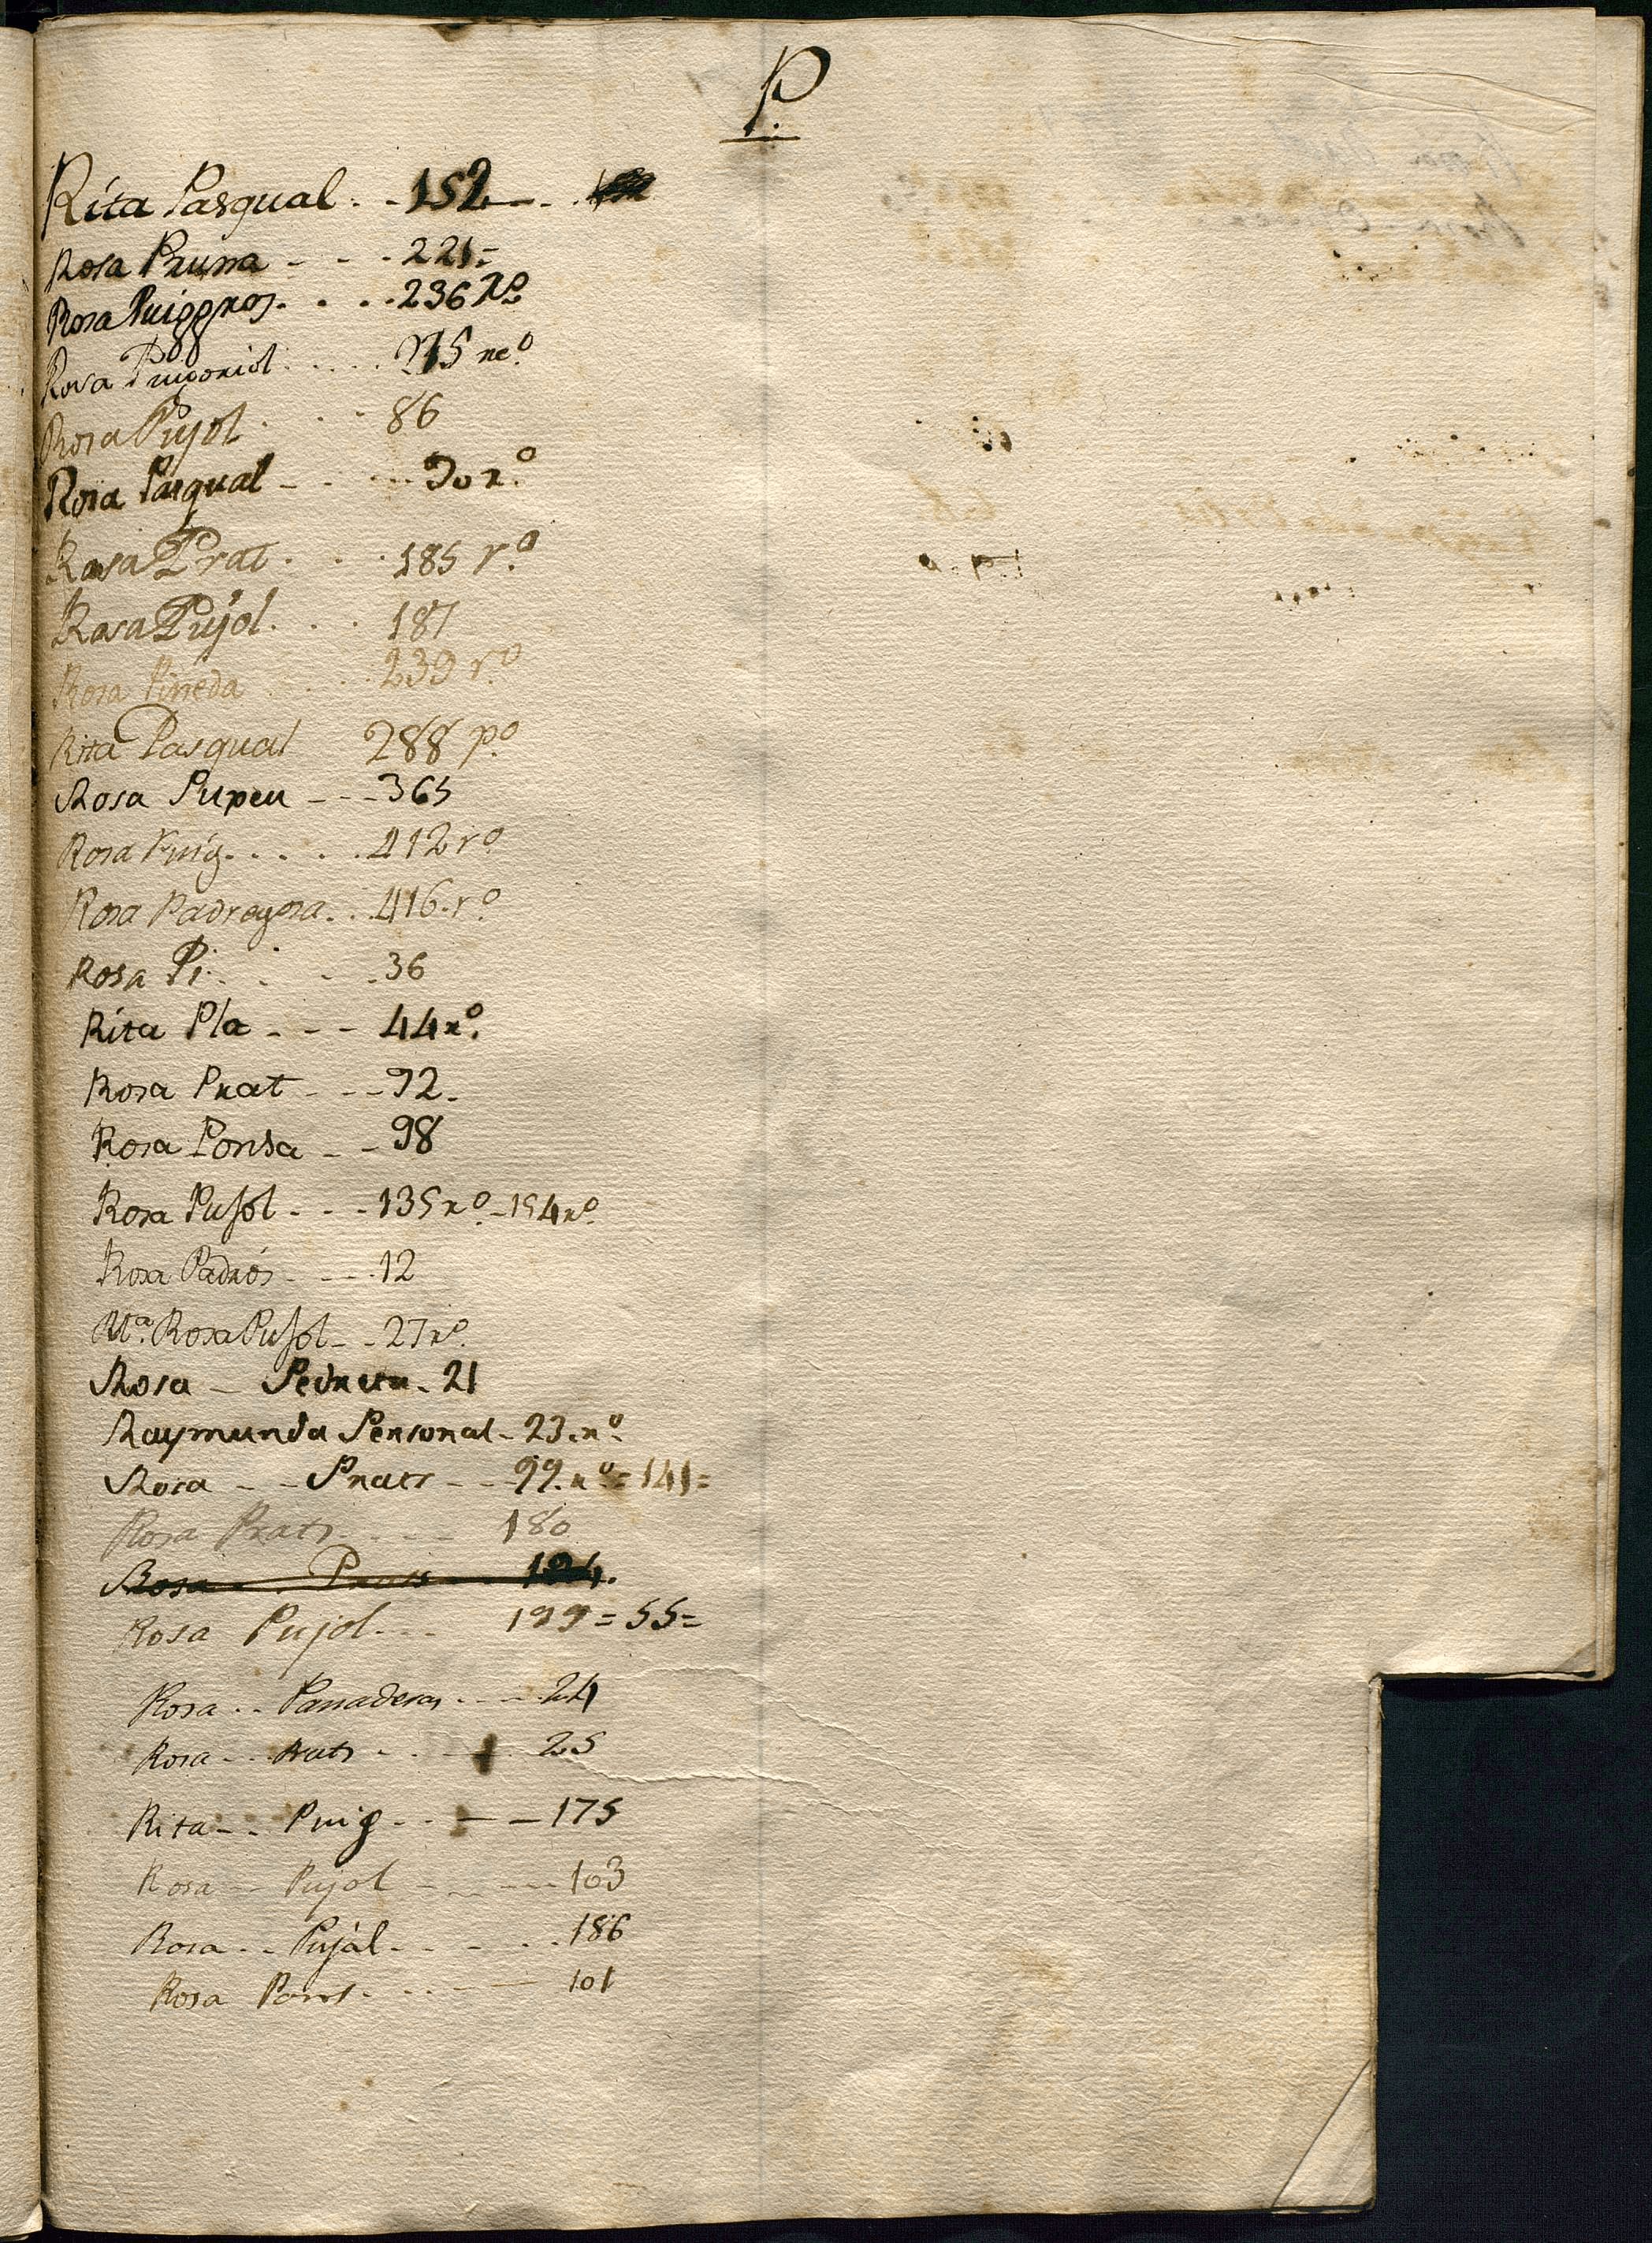 P.
Rita Pasqual. - 152 - .
Rosa Pruna - - - 221=
Rosa Puiggros. . . . 236 Ro
Rosa Puigoriol . . . . 275 reo
Rosa Pujol . . . 86
Rosa Pasqual - - - 90 ro
Rosa Prat . . . 185 r.o
Rosa Pujol . . . 187
Rosa Pineda . . . 239 r.o
Rita Pasqual 288 p.o
Rosa Pupeu - - - 365
Rosa Puig. . . . . 412 ro
Rosa Padregosa. . . 416. r.o
Rosa Pi. . . - 36
Rita Pla - - - 44 r.o
Rosa Prat - - - 92.
Rosa Ponsa - - 98
Rosa Pujol - - - 135 r.o - 154 r.o
Rosa Padrós - - - 12
Ma. Rosa Pujol - - 27 r.o
Rosa - 21
Raymunda Personal - 23. r.o
Rosa - - Prats - - 99. r.o = 141=
Rosa Prats - - - - 180
Rosa - . Prats - - 194.
Rosa Pujol - - - 199 = 55=
Rosa . . Panaderas . - - 24
Rosa - . . Prats - . . - . 25
Rita - - Puig - . - - 175
Rosa - Pujol - - - - - 103
Rosa . . Pujál - - - . . 186
Rosa Pons . . . - - 101